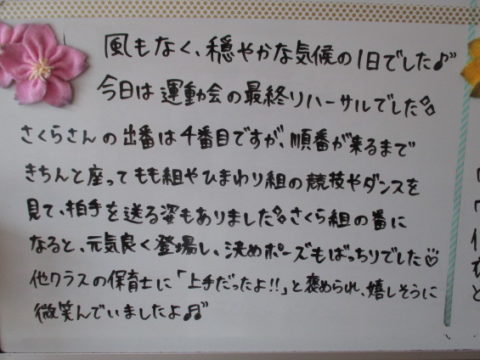 風もなく、穏やかな気候の1日でした♪"
今日は運動会の最終リハーサルでした。
さくらさんの出番は4番目ですが、順番が来るまで
きちんと座ってもも組やひまわり組の競技やダンスを
見て、拍手を送る姿もありました。さくら組の番に
なると、元気良く登場し、決めポーズもばっちりでした♡
他クラスの保育士に「上手だったよ!!」と褒められ、嬉しそうに
微笑んでいましたよ♬"